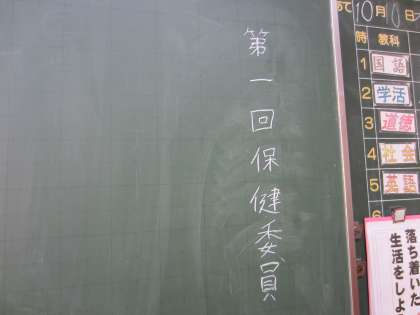 第一回保健委員
10月 日
時 教科
1 国語
2 学活
3 道徳
4 社会
5 英語
6
落ち着いた
生活をしよ